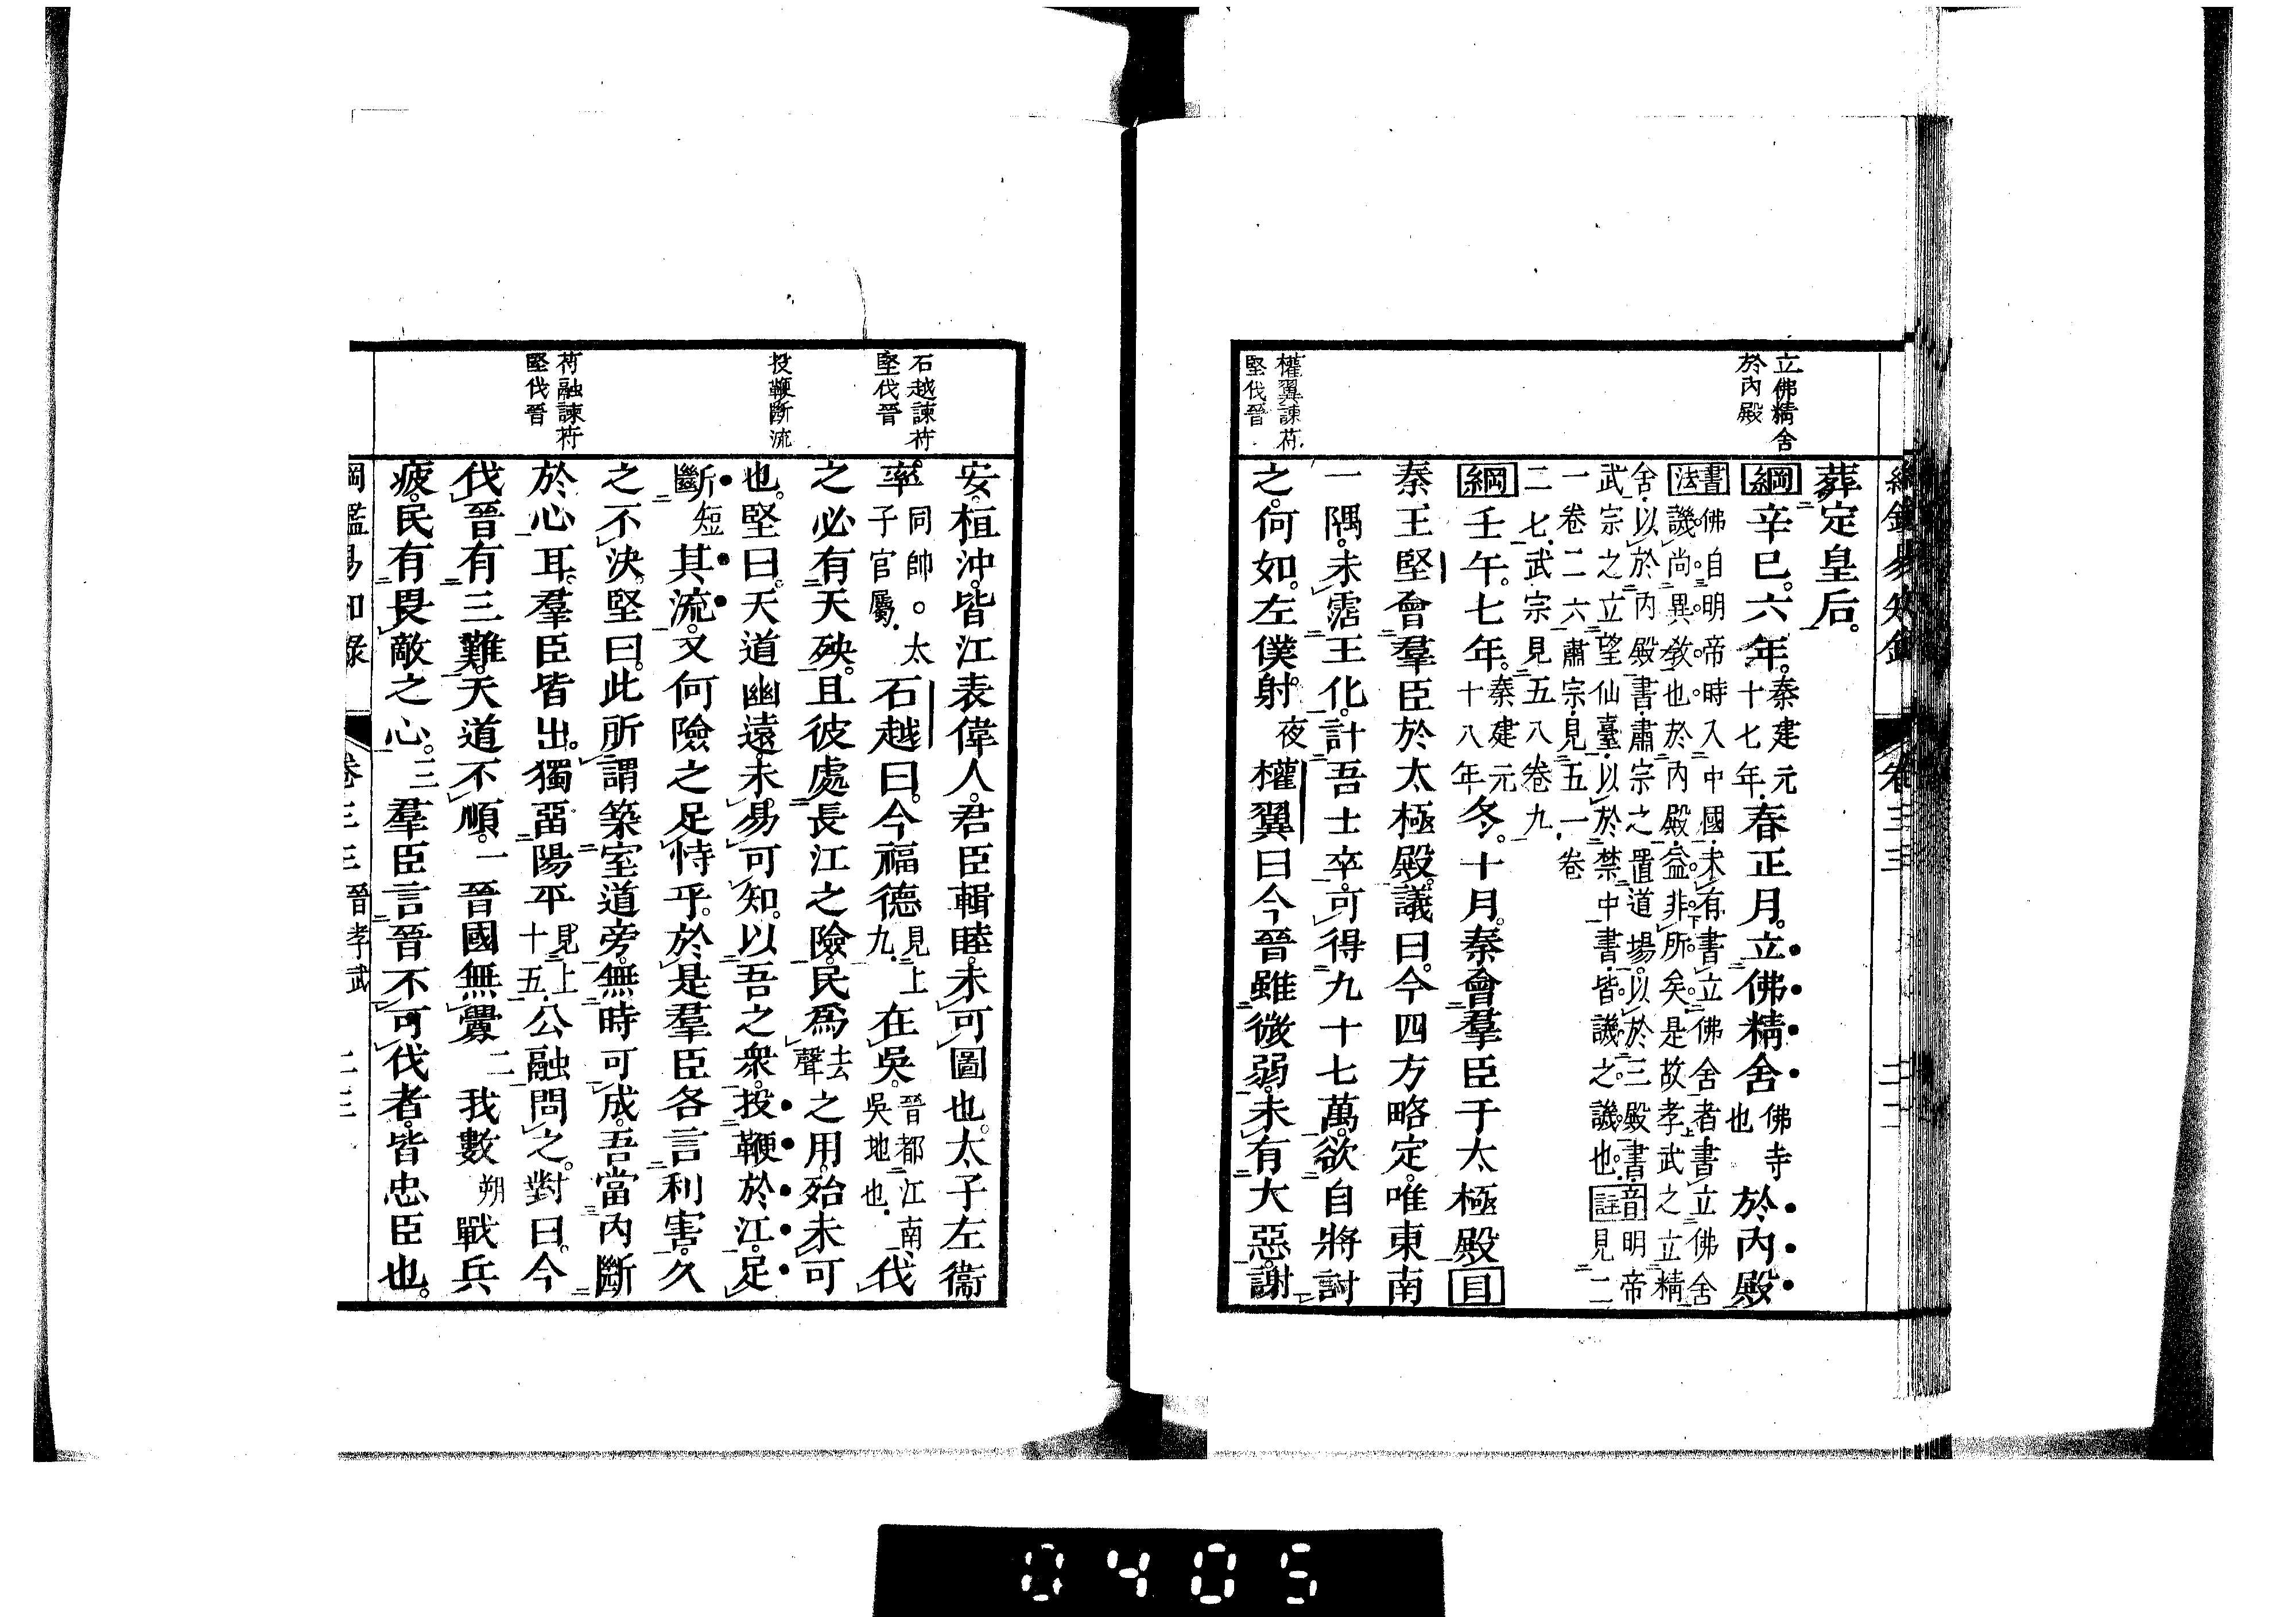 立佛精舍
於內殿
葬定皇后。
綱辛巳。六年。秦建元十七年。春正月。立佛精舍佛寺也於內殿
書法佛自明帝時入中國。未有書立佛舍者。書立佛舍
譏尚異教也。於內殿。益非所矣。是故孝武之立精
舍。以於內殿書。肅宗之置道場。以於三殿書。
武宗之立望仙臺。以於禁中書。皆譏之譏也。音註明帝見二
一卷二六。肅宗見五一卷
二七。武宗見五八卷九。
綱壬午。七年。秦建元十八年冬。十月。秦會羣臣于太極殿目
秦王堅會羣臣於太極殿。議曰。今四方略定。唯東南
一隅。未霑王化。計吾士卒。可得九十七萬。欲自將討
權翼諫苻
堅伐晉
之。何如。左僕射夜權翼曰今晉雖微弱。未有大惡。謝
安。桓沖。皆江表偉人。君臣輯睦。未可圖也。太子左衞
石越諫苻
堅伐晉
率。同帥。太子官屬。石越曰。今福德見上九。在吳。晉都江南。吳地也。伐
之必有天殃。且彼處長江之險。民爲去聲之用。殆未可
投鞭斷流
也。堅曰。天道幽遠。未易可知。以吾之衆。投鞭於江。足
斷短其流。又何險之足恃乎。於是羣臣各言利害。久
之不決。堅曰。此所謂築室道旁。無時可成。吾當內斷
苻融諫苻
堅伐晉
於心耳。羣臣皆出。獨畱陽平見上十五。公融問之。對曰。今
伐晉有三難。天道不順。一晉國無釁二我數朔戰兵
疲。民有畏敵之心。三羣臣言晉不可伐者。皆忠臣也。
綱鑑易知錄 卷三三 晉孝武 二三
0405